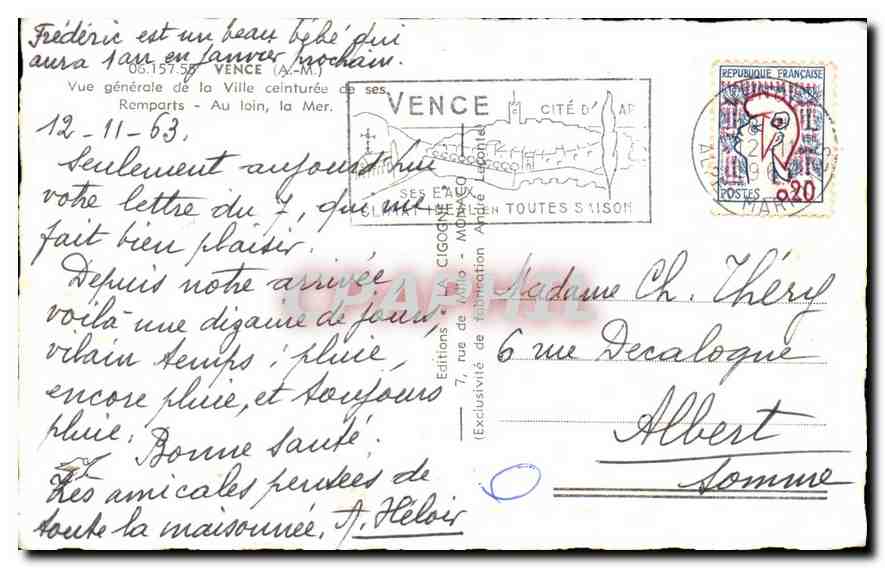 Frédéric est un beau bébé qui
aura 1 an en janvier prochain.
06.157.55 VENCE (A.-M.)
Vue générale de la Ville ceinturée de ses
Remparts - Au loin, la Mer.
12-11-63.
Seulement aujourd'hui
votre lettre du 7, qui me
fait bien plaisir.
Depuis notre arrivée,
voilà une dizaine de jours,
vilain temps : pluie,
encore pluie, et toujours
pluie.
Bonne santé.
Les amicales pensées de
toute la maisonnée. A. Héloir
VENCE
CITÉ D'AR
SES EAUX
CLIMAT IDEAL EN TOUTES SAISON
Editions "LA CIGOGNE"
7, rue de Millo - MONACO
(Exclusivité de fabrication André Leconte)
REPUBLIQUE FRANÇAISE
POSTES 0,20
MAR
Madame Ch. Théry
6 rue Decalogne
Albert
Somme
CPAPHIL